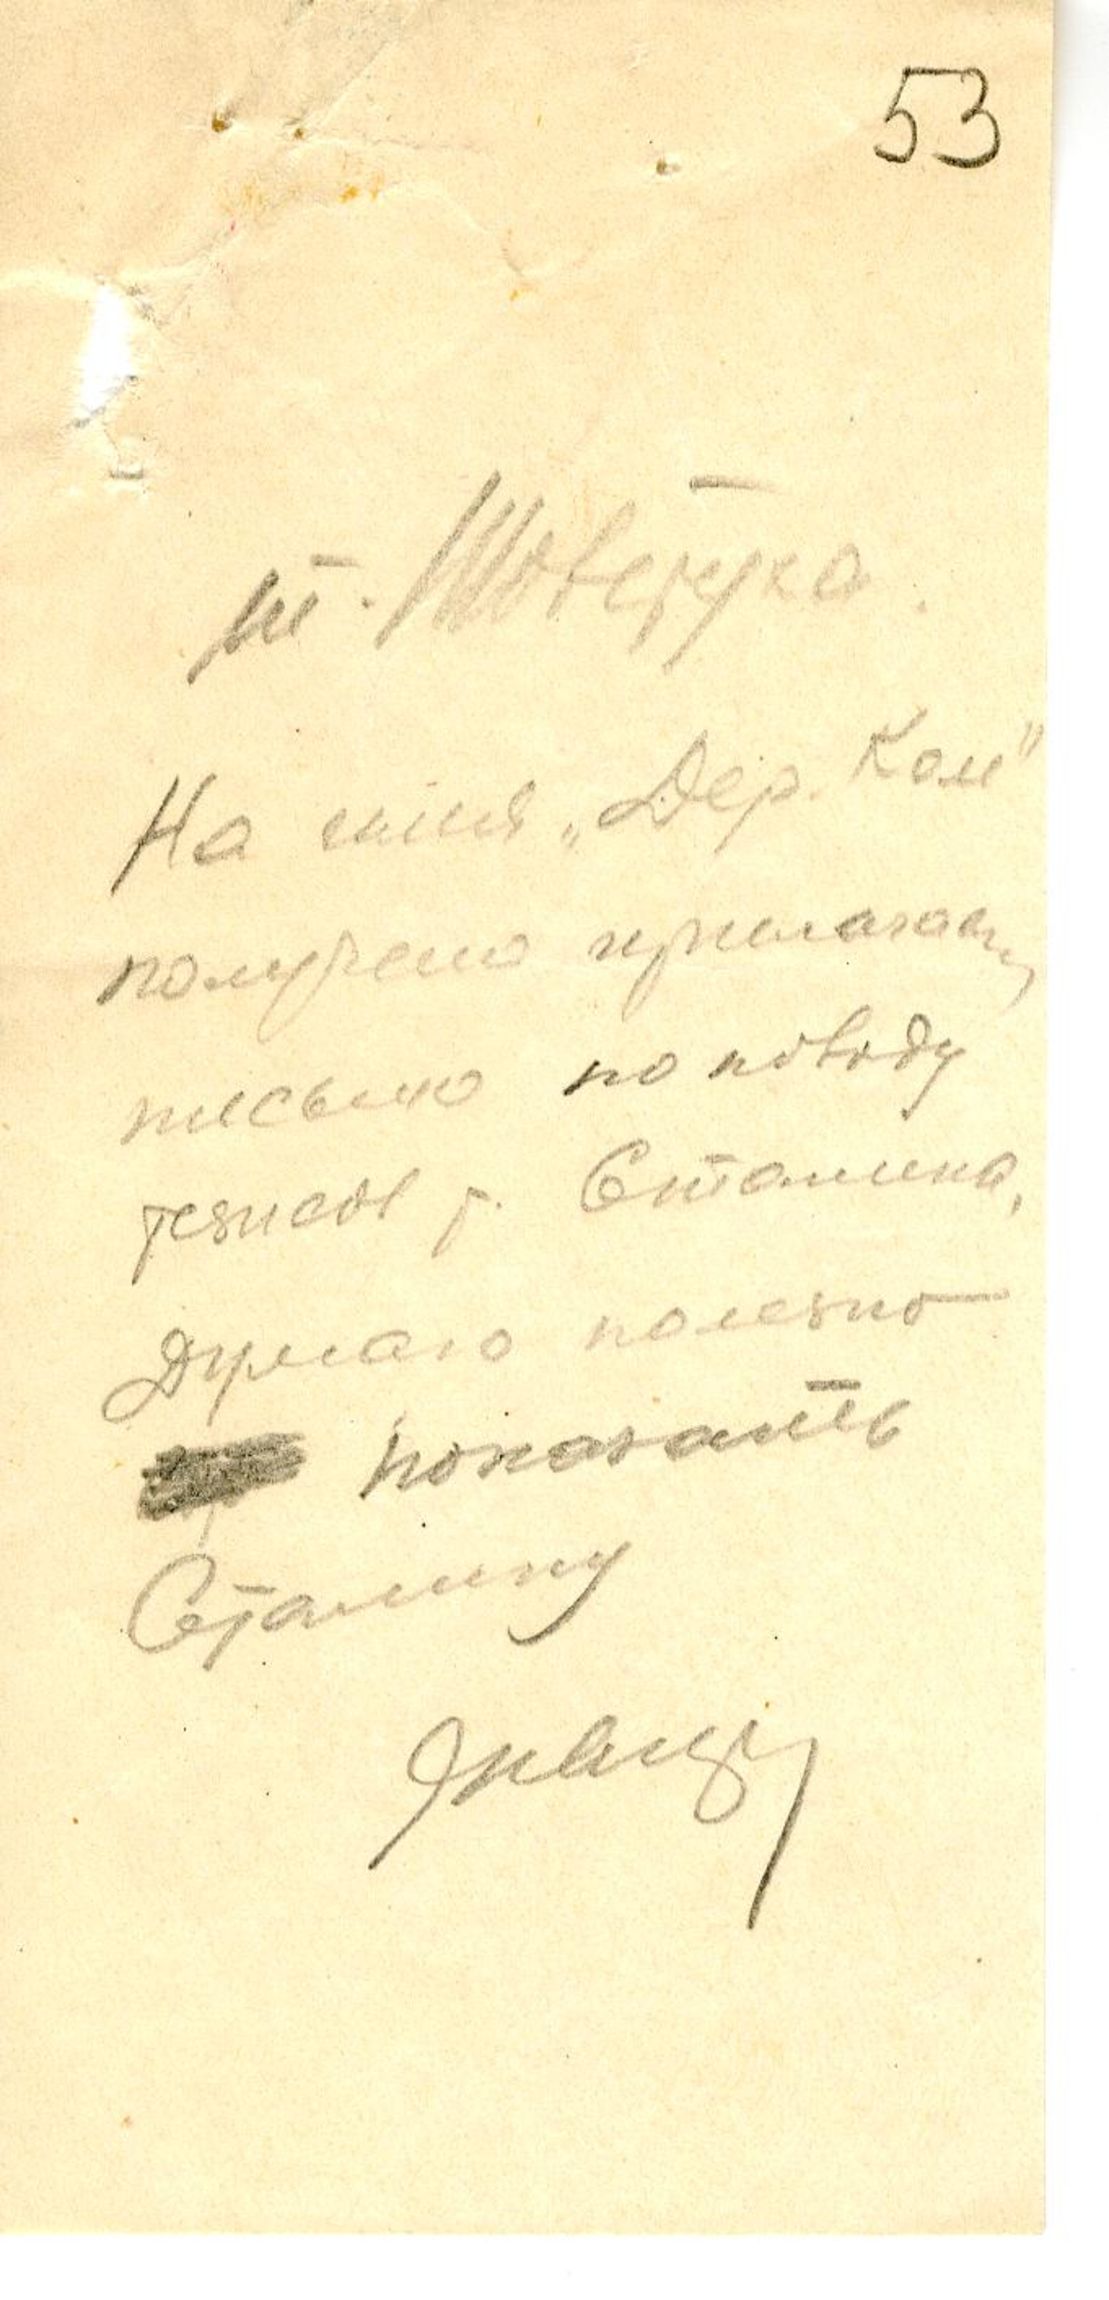 53
т. Товстуха.
На имя „Дер. Ком"
получено прилагаем,
письмо по поводу
тезисов т. Сталина,
Думаю полезно
показать
Сталину